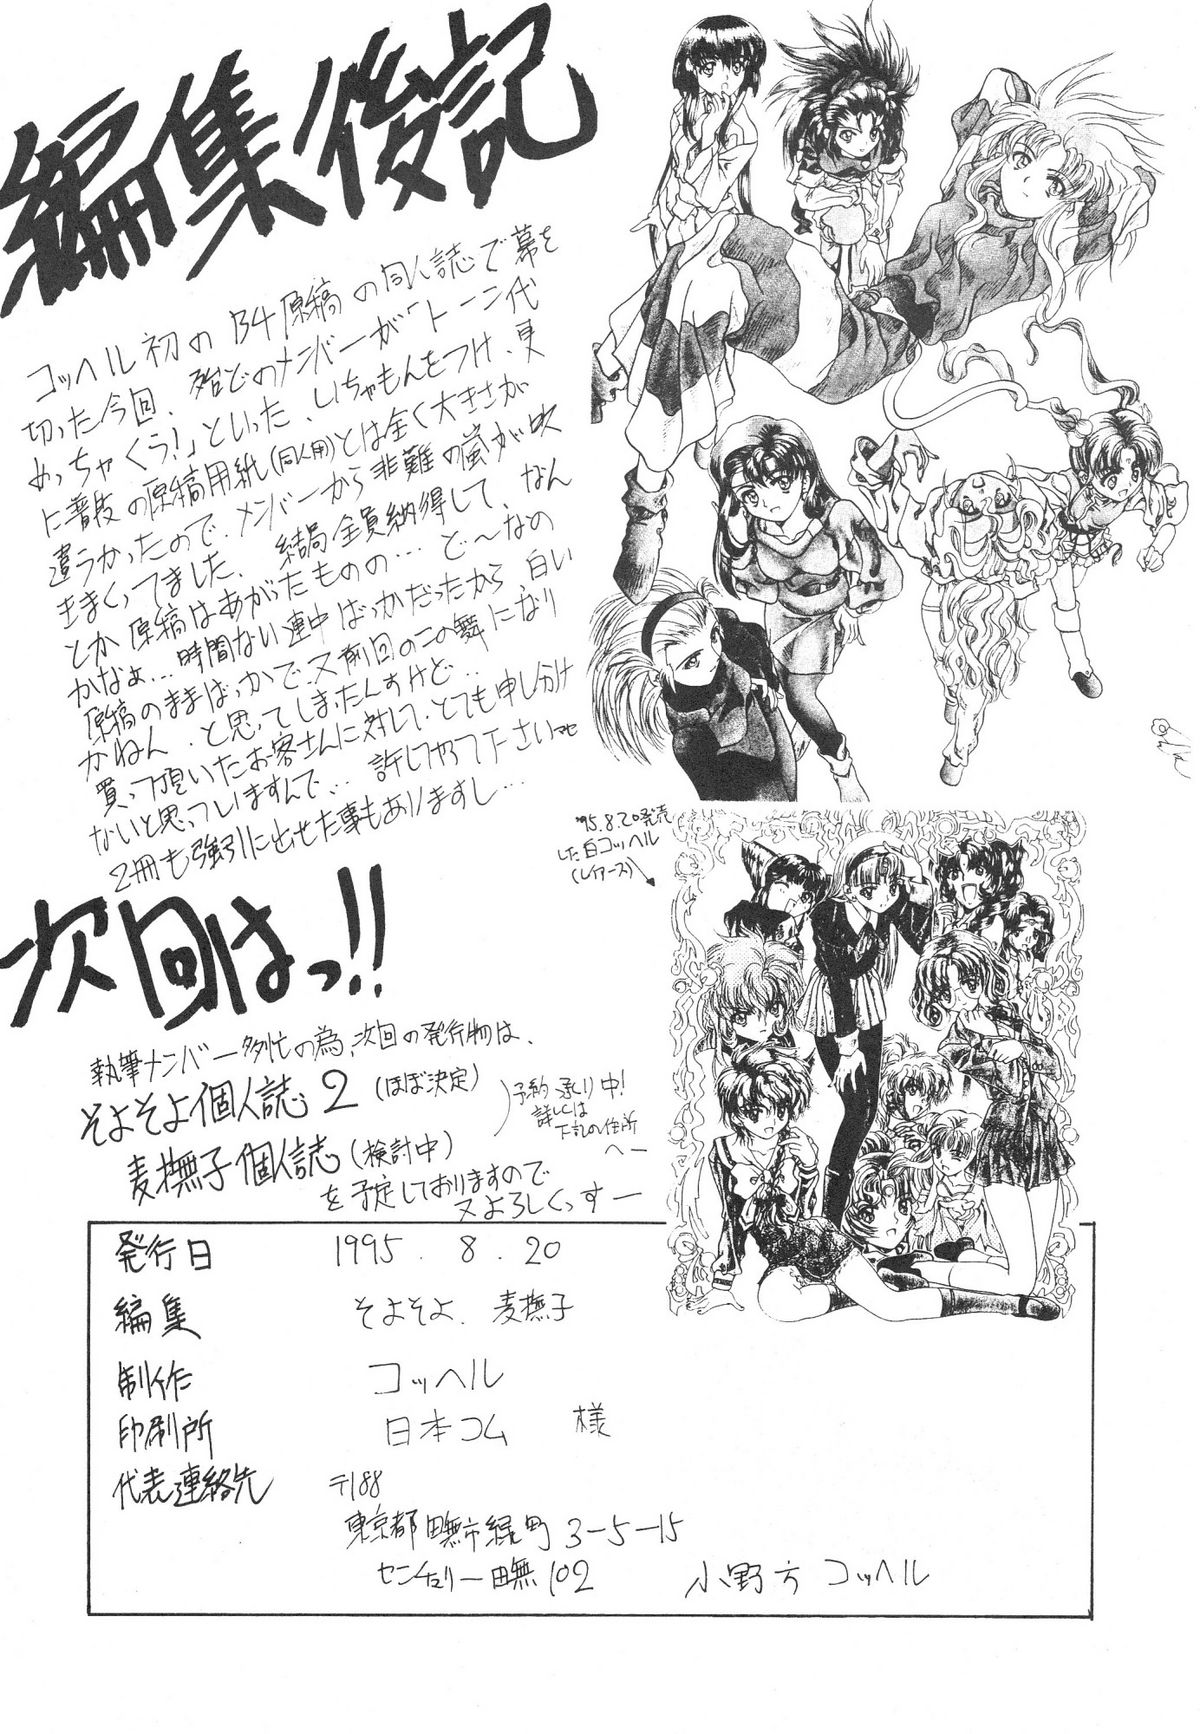 編集後記
コッヘル初のB4原稿の同人誌で幕を
切った今回、殆どのメンバーが「トーン代
めっちゃくう!」といった、いちゃもんをつけ、更
に普段の原稿用紙(同人用)とは全く大きさが
違うかったので、メンバーから非難の嵐が吹
きまくってました、結局全員納得して、なん
とか原稿はあがったものの…ど〜なの
かなぁ…時間ない連中ばっかだったから白い
原稿のままばっかで、又前回のこの舞になり
かねん、と思ってしまったんすけど…
買って頂いたお客さんに対して、とても申し分け
ないと思っていますんで…許してやって下さいませ
2冊も強引に出せた事もありますし…
'95.8.20発売
した白コッヘル
(レイアース)
次回はっ!!
執筆メンバー多忙の為、次回の発行物は、
そよそよ個人誌2(ほぼ決定)
麦撫子個人誌(検討中)
予約承り中!
詳しくは
下記の住所
へー
を予定しておりますので
又よろしくっすー
発行日 1995.8.20
編集 そよそよ、麦撫子
制作 コッヘル
印刷所 日本コム 様
代表連絡先 〒188
東京都田無市緑町3-5-15
センチュリー田無102 小野方 コッヘル